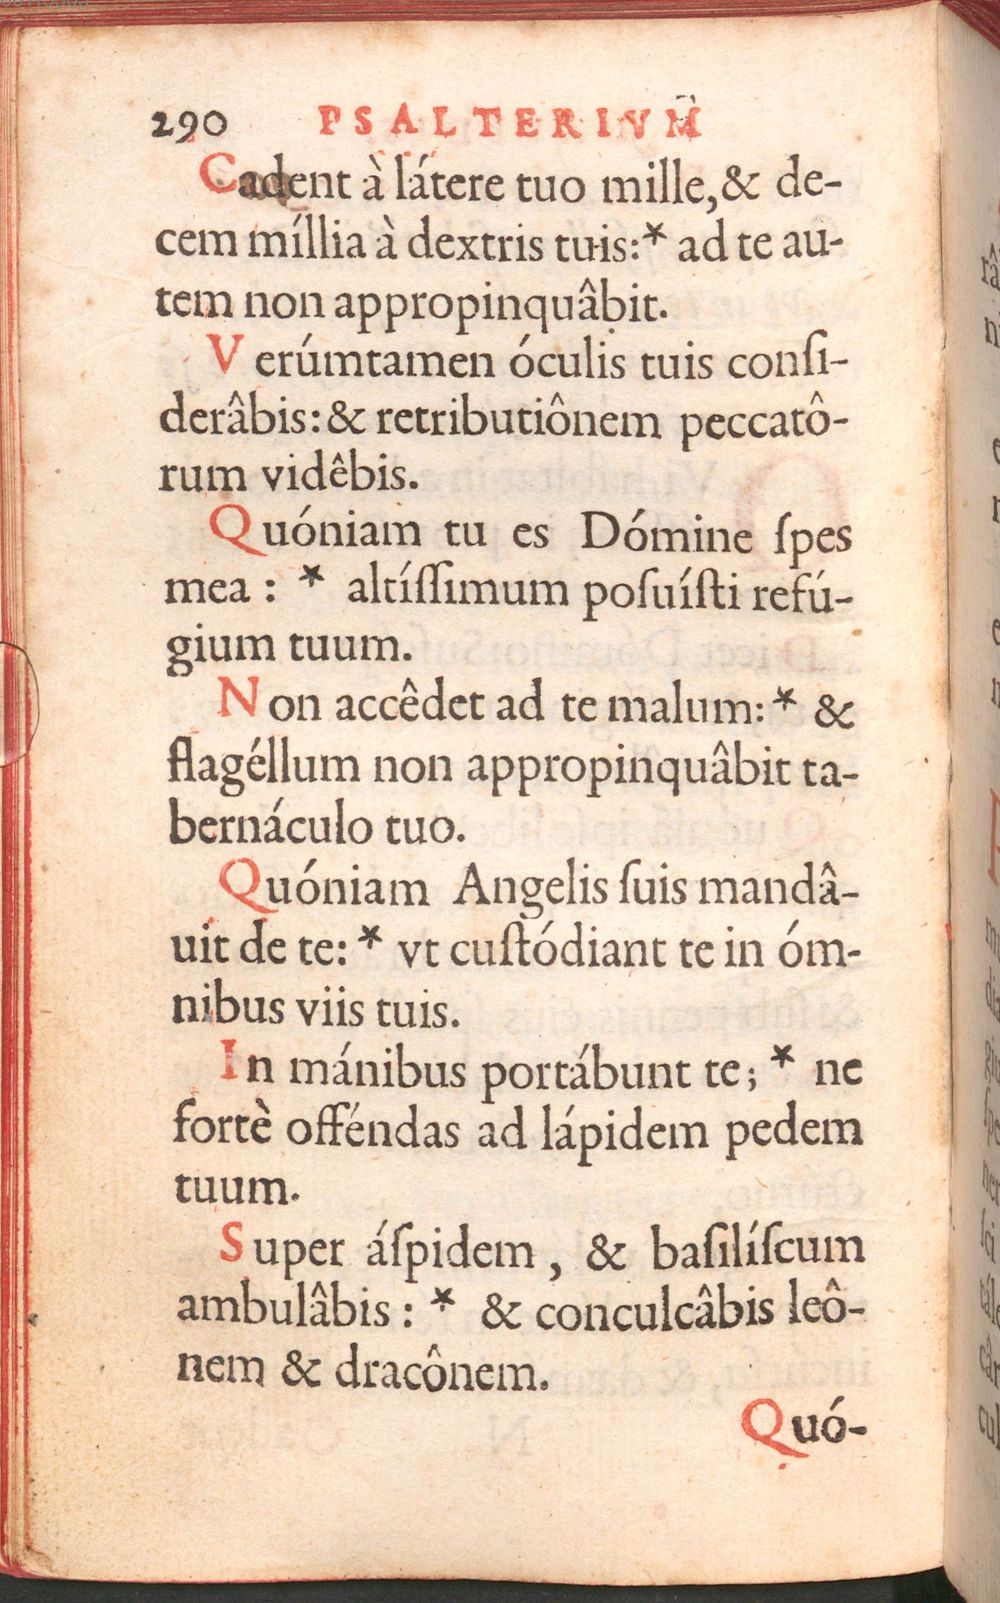 290 PSALTERIVM
Cadent à látere tuo mille, & de-
cem míllia à dextris tuis: * ad te au-
tem non appropinquâbit.
Verúmtamen óculis tuis conſi-
derâbis: & retributiônem peccatô-
rum vidêbis.
Quóniam tu es Dómine ſpes
mea : * altíſſimum poſuíſti refú-
gium tuum.
Non accêdet ad te malum: * &
flagéllum non appropinquâbit ta-
bernáculo tuo.
Quóniam Angelis ſuis mandâ-
uit de te: * vt cuſtódiant te in óm-
nibus viis tuis.
In mánibus portábunt te; * ne
fortè offéndas ad lápidem pedem
tuum.
Super áſpidem, & baſilíſcum
ambulâbis : * & conculcâbis leô-
nem & dracônem.
Quó-